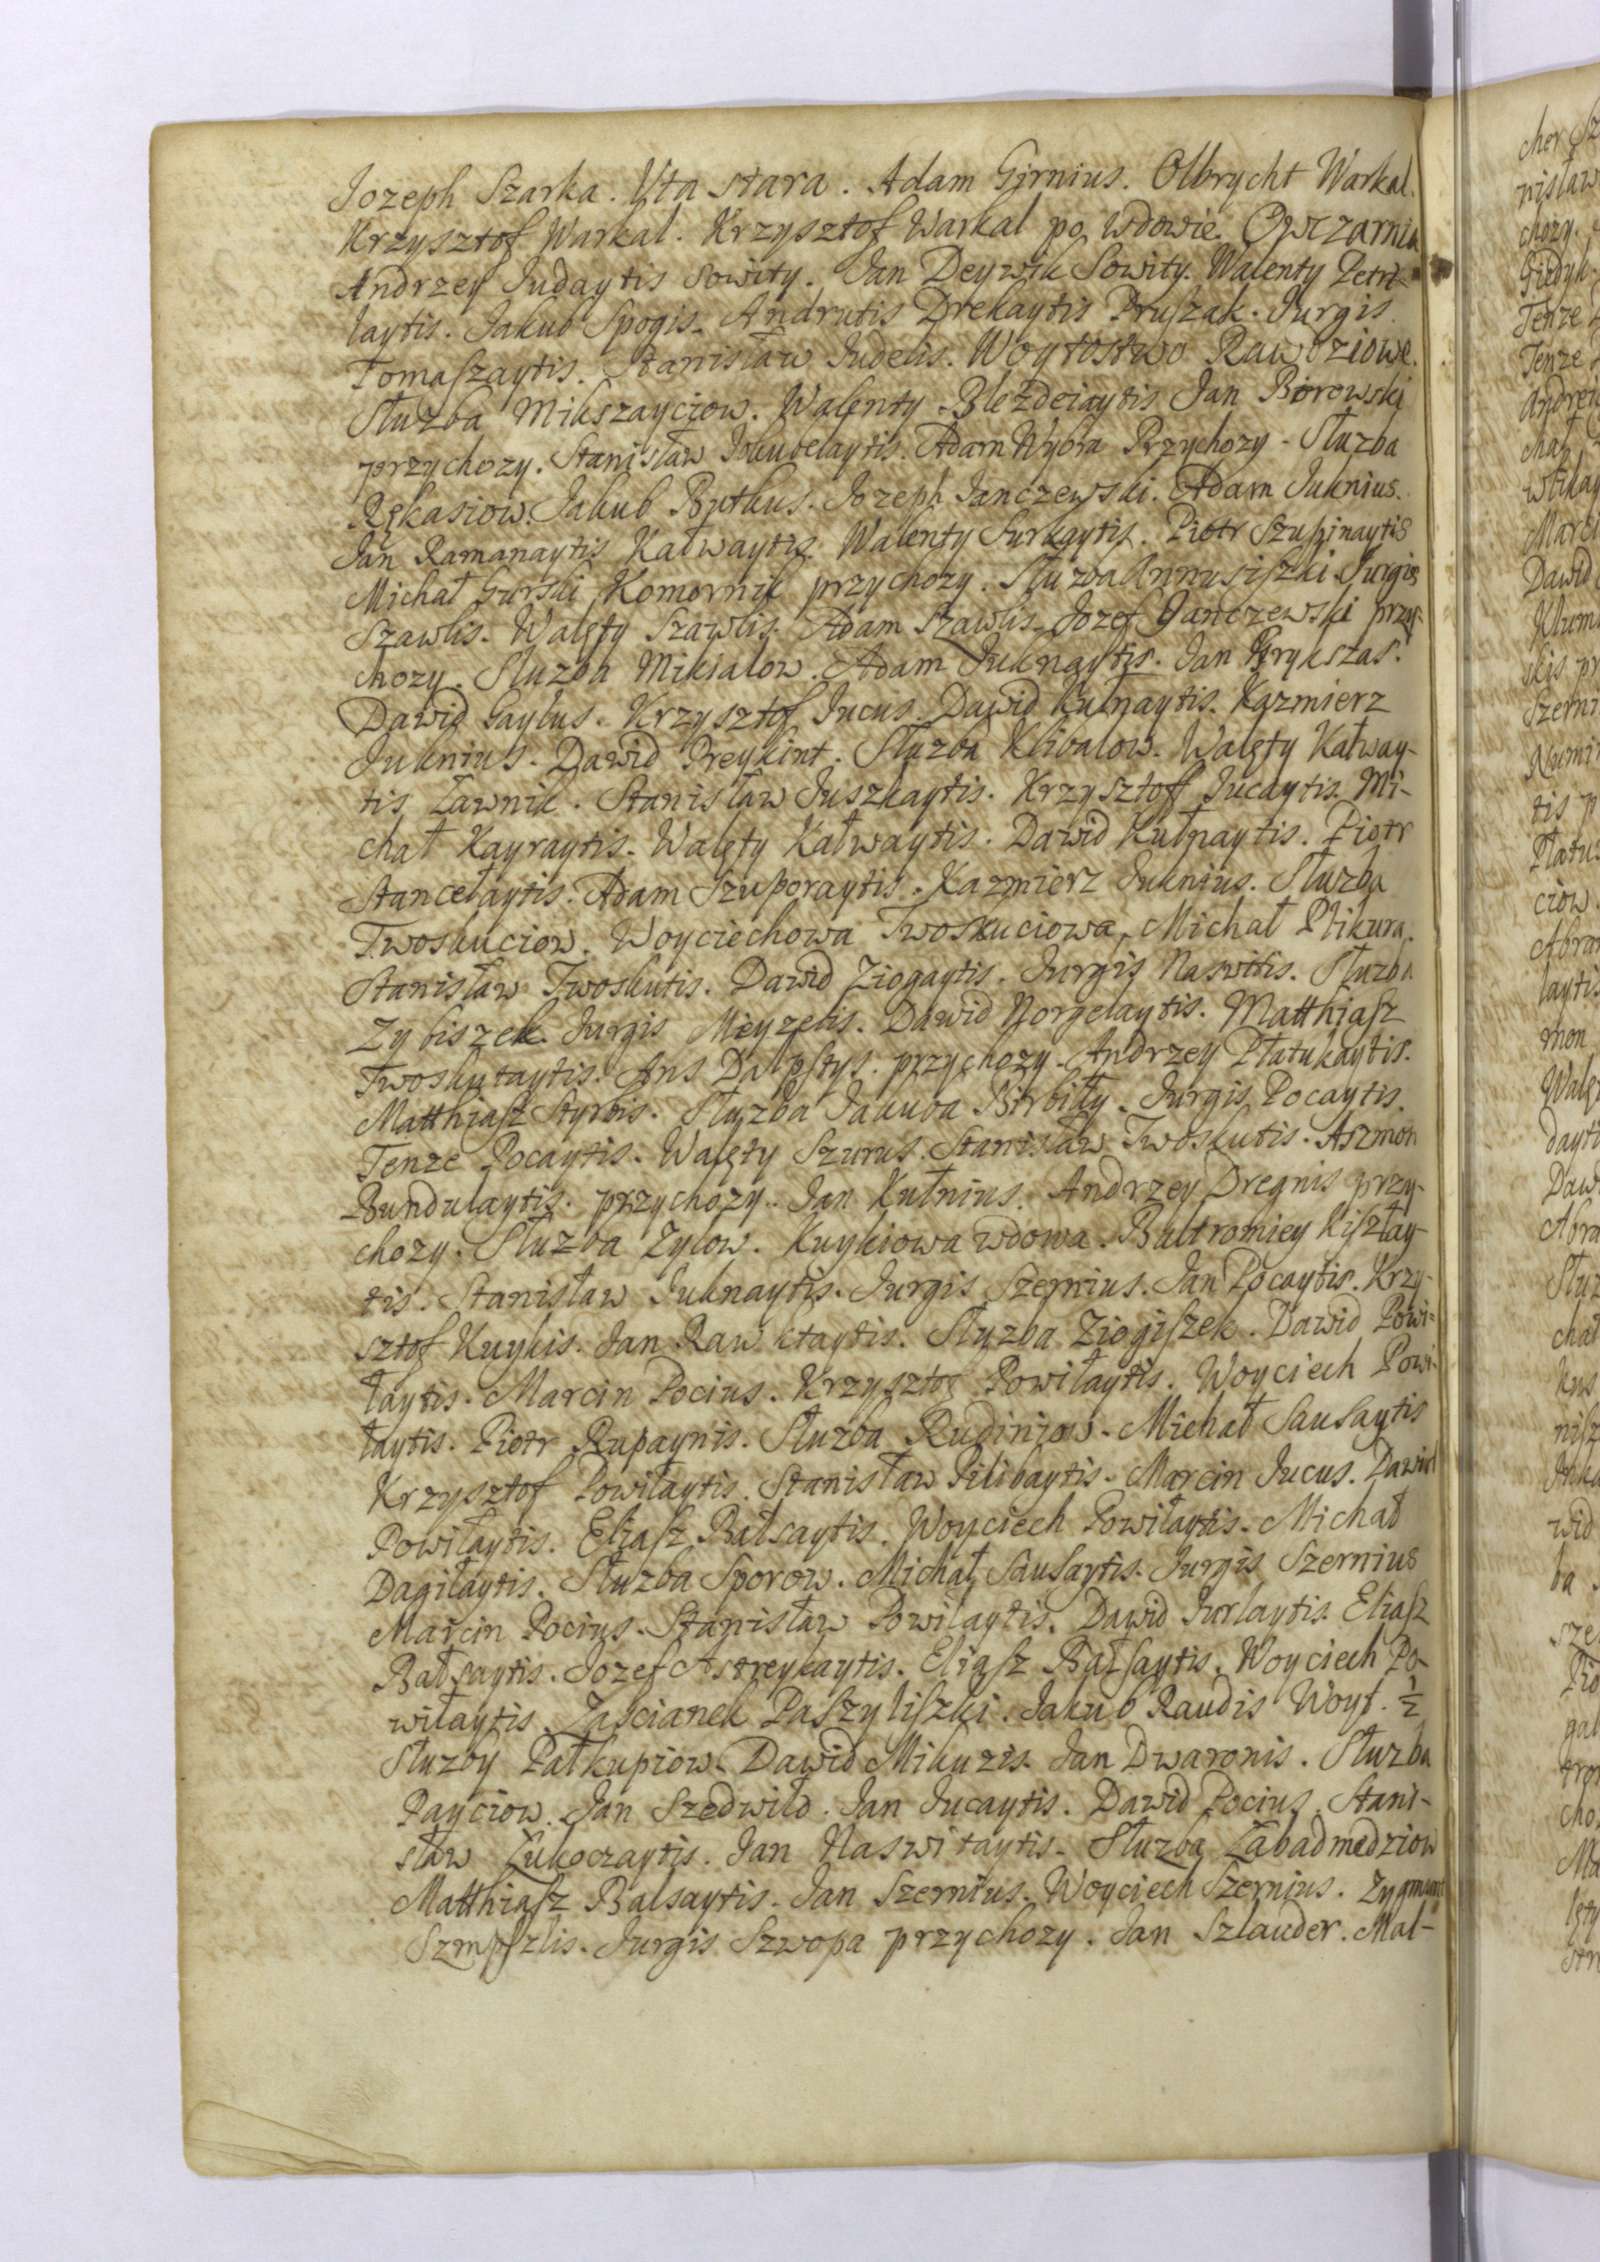 Jozeph Szarka. Uta stara. Adam Girnius. Olbrycht Warkal.
Krzysztof Warkal. Krzysztof Warkal po wdowie. Owczarnia
Andrzey Judaytis sowity. Jan Deywik Sowity. Walenty Petri-
laytis. Jakub Spogis. Andrutis Drekaytis Pruszak. Jurgis
Tomaszaytis. Stanisław Judelis. Woytostwo Rawdziowe.
Służba Mikszayciow. Walenty Blezdeiaytis Jan Borowski
przychozy. Stanisław Jokubelaytis. Adam Wybra Przychozy - Służba
Rękasiow. Jakub Butkus. Jozeph Janczewski. Adam Juknius.
Jan Ramanaytis Kałwaytis. Walenty Surkaytis. Piotr Szupinaytis
Michał Gurski Komornik przychozy. Służba Annusiszki. Jurgis
Szawlis. Walęty Szawlis. Adam Szawlis. Jozef Janczewski przy-
chozy. Służba Mikialow. Adam Juknaytis. Jan Prykszas.
Dawid Gaylus. Krzysztof Jucus. Dawid Kulnaytis. Kazmierz
Juknius. Dawid Preykint. Służba Klibalow. Walęty Kałway-
tis Ławnik. Stanisław Juszkaytis. Krzysztoff Jucaytis. Mi-
chał Kayraytis. Walęty Kałwaytis. Dawid Kułnaytis. Piotr
Stancełaytis. Adam Szuporaytis. Kazmierz Juknius. Służba
Twoskuciow. Woyciechowa Twoskuciowa. Michał Plikura.
Stanisław Twoskutis. Dawid Ziogaytis. Jurgis Naswitis. Służba
Zybiszek. Jurgis Mieyzelis. Dawid Norgelaytis. Matthiasz
Twoskutaytis. Ans przychozy. Andrzey Płatukaytis.
Matthiasz Styrbis. Służba Jakuba Birbiłły. Jurgis Pocaytis.
Tenze Pocaytis. Walęty Szurus. Stanisław Twoskutis. Aszmon
Bundulaytis. przychozy. Jan Kułnius. Andrzey Dregnis przy-
chozy. Służba Zylow. Kuykiowa wdowa. Baltromiey Kiszłay-
tis. Stanisław Juknaytis. Jurgis Szernius. Jan Pocaytis. Krzy-
sztof Kuykis. Jan Rawktaytis. Służba Ziogiszek. Dawid Powi-
łaytis. Marcin Pocius. Krzysztof Powiłaytis. Woyciech Powi-
łaytis. Piotr Rupaynis. Służba Rudiniow. Michał Sausaytis
Krzysztof Powiłaytis. Stanisław Pilibaytis. Marcin Jucus. Dawid
Powiłaytis. Eliasz Bałsaytis. Woyciech Powiłaytis. Michał
Dagiłaytis. Służba Sporow. Michał Sausaytis. Jurgis Szernius
Marcin Pocius. Stanisław Powilaytis. Dawid Jurlaytis. Eliasz
Bałsaytis. Jozef Astreykaytis. Eliasz Bałsaytis. Woyciech Po-
wiłaytis. Zascianek Paszyliszki. Jakub Raudis Woyt. ½
Służby Pałkupiow. Dawid Mikuzis. Jan Dwaronis. Służba
Payciow. Jan Szedwiłd. Jan Jucaytis. Dawid Pocius. Stani-
sław Łukoczaytis. Jan Naswitaytis. Służba Łabadmedziow
Matthiasz Balsaytis. Jan Szernius. Woyciech Szernius. Zygmunt
Jurgis Szwopa przychozy. Jan Szlauder. Mał-